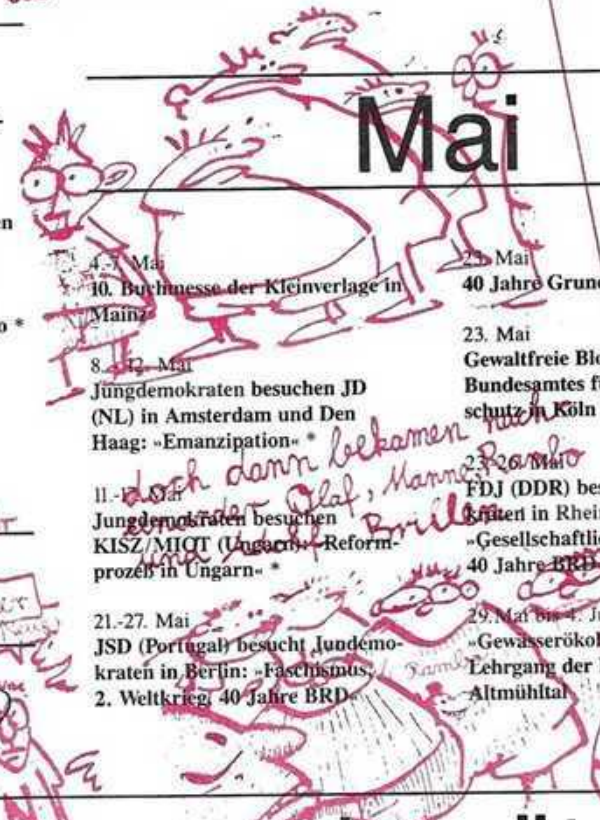 Mai
4.-7. Mai
10. Buchmesse der Kleinverlage in
Mainz
8. - 12. Mai
Jungdemokraten besuchen JD
(NL) in Amsterdam und Den
Haag: »Emanzipation« *
11.-17. Mai
Jungdemokraten besuchen
KISZ/MIOT (Ungarn): »Reform-
prozeß in Ungarn« *
21.-27. Mai
JSD (Portugal) besucht Jundemo-
kraten in Berlin: »Faschismus,
2. Weltkrieg, 40 Jahre BRD«
23. Mai
40 Jahre Grun
23. Mai
Gewaltfreie Blo
Bundesamtes f
schutz in Köln
23.-26. Mai
FDJ (DDR) bes
kraten in Rhei
»Gesellschaftlic
40 Jahre BRD
29. Mai bis 4. J
»Gewässerökol
Lehrgang der
Altmühltal
doch dann bekamen nach
einander Olaf, Manne, Rambo
und Brillen